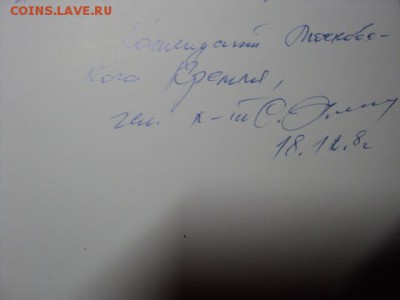 COINS.LAVE.RU
Комендант Московс-
кого Кремля,
ген. л-т С.
18.12.8